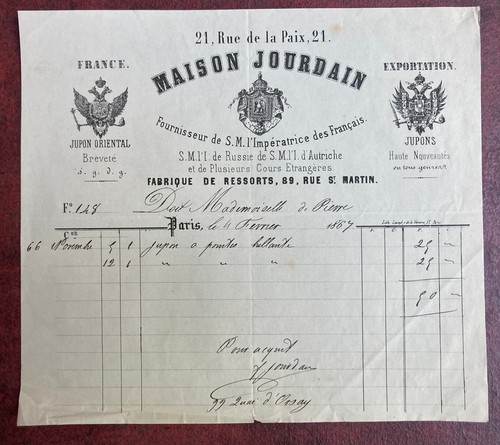 21, Rue de la Paix, 21.
FRANCE.
MAISON JOURDAIN
EXPORTATION.
Fournisseur de S.M. l'Impératrice des Français.
JUPON ORIENTAL
Breveté
s. g. d. g.
S.M.I'I. de Russie de S.M.I'I. d'Autriche
et de Plusieurs Cours Etrangères.
JUPONS
Haute Nouveautés
en tous genres
FABRIQUE DE RESSORTS, 89, RUE St. MARTIN.
Fo. 148 Doit Mademoiselle de Pierre
Paris, le 4 Fevrier 1867
66 Novembre 5 1 jupon a pointes 25 "
12 1 " " " 25 "
50 "
Pour acquit
Jourdain
99 Quai d'Orsay